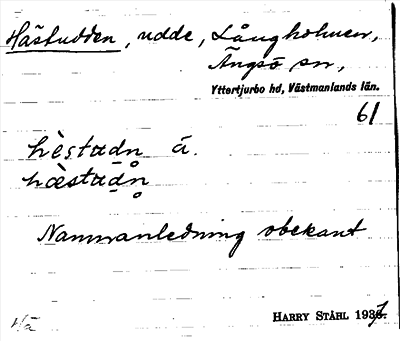 Hästudden, udde, Långholmen,
Ängsö sn,
Yttertjurbo hd, Västmanlands län.
61
hèstudn̥ ä.
hæ̀studn̥
Namnanledning obekant
Hä
HARRY STÅHL 1937.